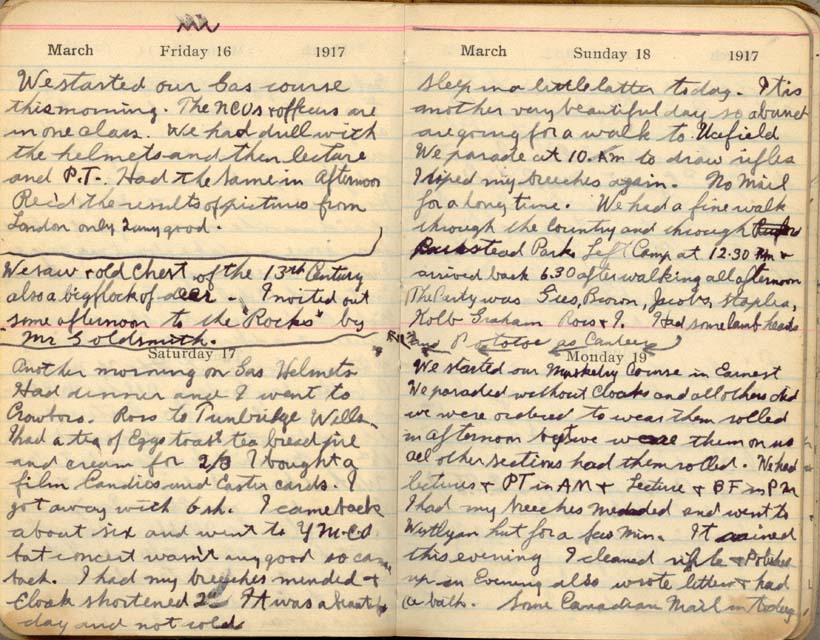 March Friday 16 1917
We started our Gas course
this morning. The NCOs & officers are
in one class. We had drill with
the helmets and then lecture
and P.T. Had the same in Afternoon
Rec'd the results of pictures from
London only 2 any good.
We saw & old Chest of the 13th Century
also a big flock of deer. I invited out
some afternoon to the "Rocks" by
Mr Goldsmith.
Saturday 17
Another morning on Gas Helmets
Had dinner and I went to
Crowboro. Ross to Tunbridge Wells.
I had a tea of Eggs toast tea bread
and cream for 2/3 I bought a
film Candies and Easter cards. I
got away with 6 sh. I came back
about six and went to YMCA
but concert wasn't any good so came
back. I had my breeches mended &
Cloak shortened 2 It was a beautiful
day and not cold
March Sunday 18 1917
Sleep in a little latter today. It is
another very beautiful day so a bunch
are going for a walk to Ucfield
We parade at 10. Am to draw rifles
I riped my breeches again. No Mail
for a long time. We had a fine walk
through the Country and through
Park Left Camp at 12.30 Pm &
arrived back 6.30 after walking all afternoon
The Party was Gees, Brown, Jacobs, Staples,
Kolb Graham Ross & I. Had some lamb heads
and Potatoe as
Monday 19
We started our Musketry Course in Earnest
We paraded without Cloaks and all others did
we were ordered to wear them rolled
in afternoon but we wore them on us
all other sections had them rolled. We had
lectures & PT in AM & Lecture & BF in PM
I had my breeches mended and went to
Weslyan hut for a few min. It rained
this evening I cleaned rifle & Polished
up in Evening also wrote letter & had
a bath. Some Canadian Mail in today